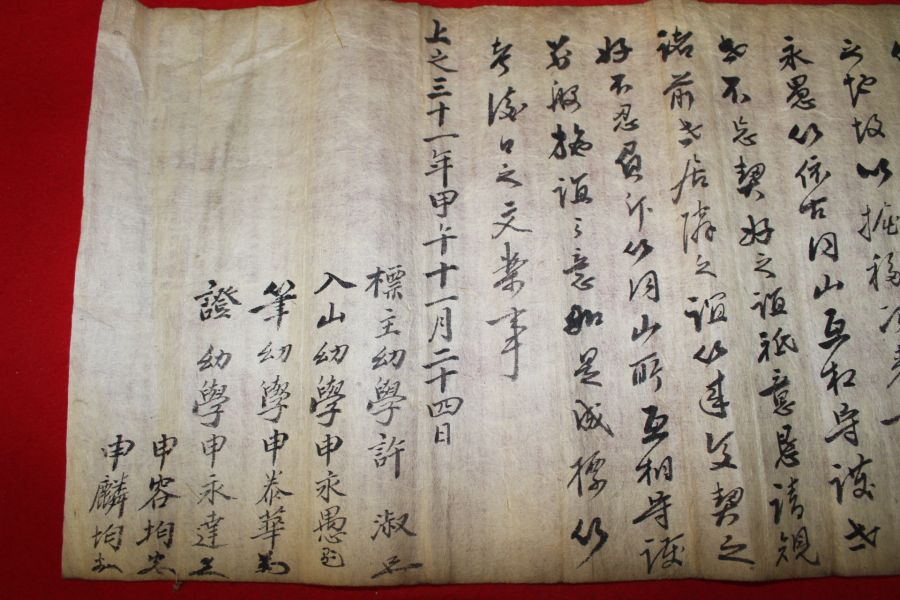 之地故以掘移
永愚以依古同山互相守護世
世不忘契好之誼意恳請
諾前世居隣之誼以交契之
好不忍負以同山所互相守護
般施誼之意如是成標以
考後日之文案事
上之三十一年甲午十一月二十四日
標主幼學許淑
入山幼學申永愚
筆幼學申泰華
證幼學申永達
申容均
申麟均